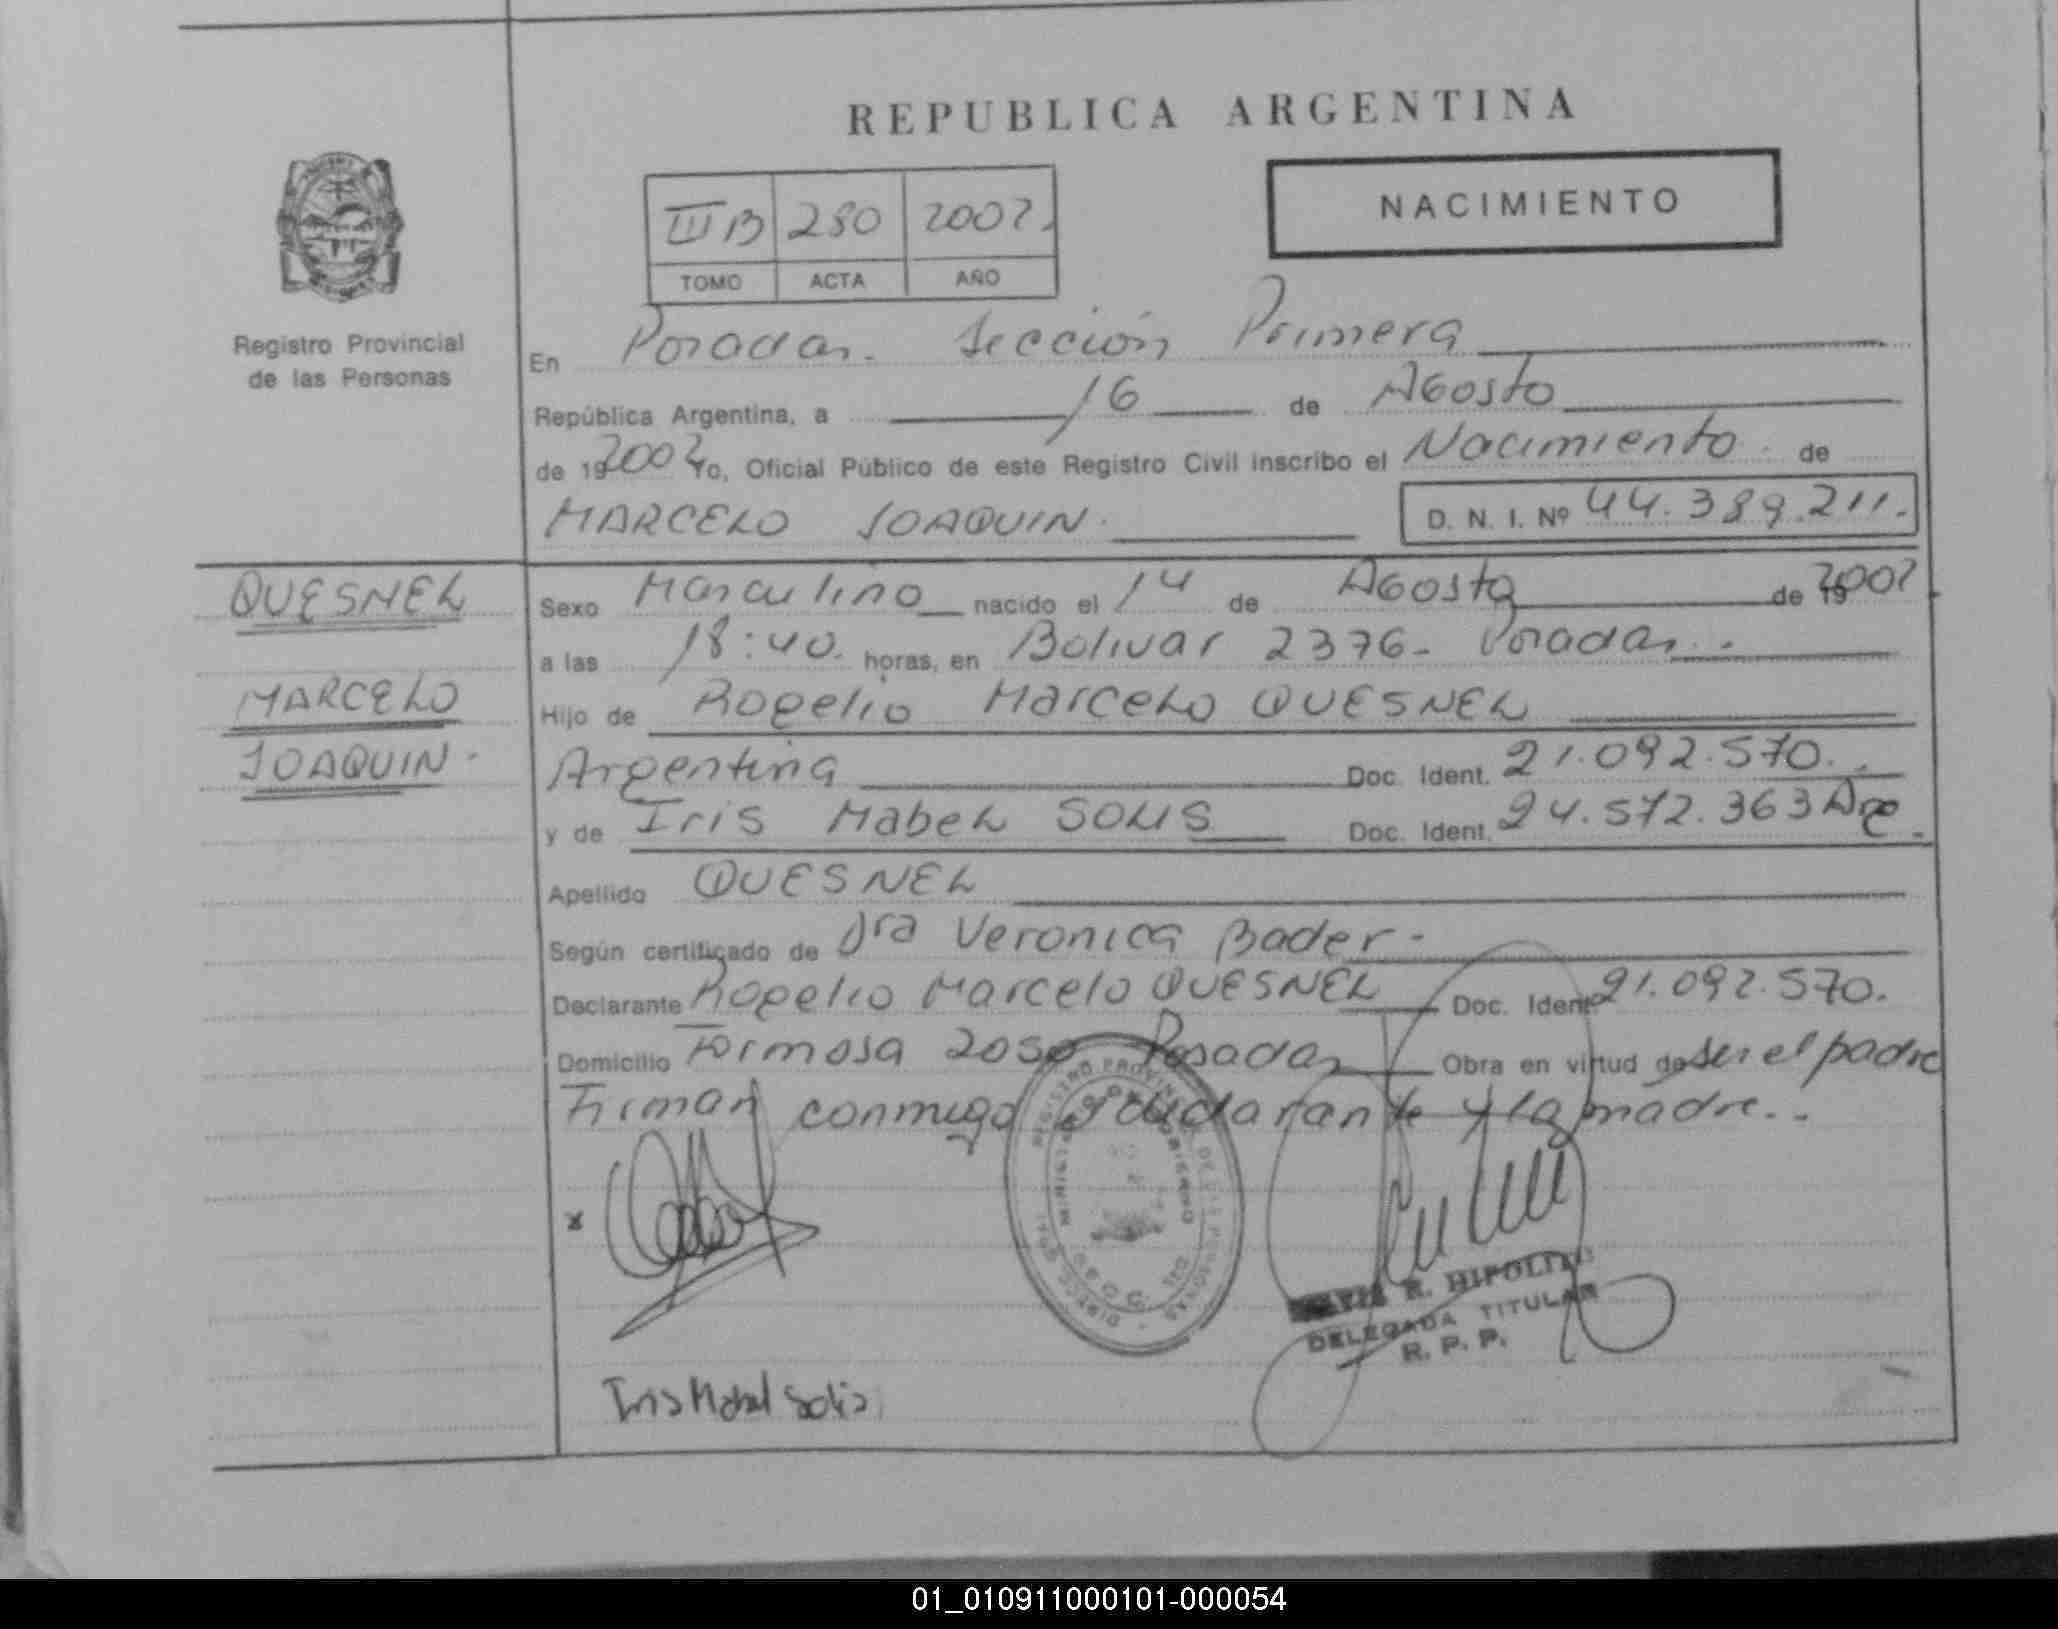 REPUBLICA ARGENTINA
NACIMIENTO
III B 280 2002.
TOMO ACTA AÑO
Registro Provincial
de las Personas
En Posadas. Sección Primera
República Argentina, a 16 de Agosto
de 19 2002 Yo, Oficial Público de este Registro Civil inscribo el Nacimiento de
MARCELO JOAQUIN. D. N. I. Nº 44.389.211.
QUESNEL
MARCELO
JOAQUIN.
Sexo Masculino nacido el 14 de Agosto de 19 2002
a las 18:40. horas, en Bolivar 2376. Posadas.
Hijo de Rogelio Marcelo QUESNEL
Argentina Doc. Ident. 21.092.570.
y de Iris Mabel SOLIS Doc. Ident. 24.572.363 Arg.
Apellido QUESNEL
Según certificado de Dra Veronica Bader.
Declarante Rogelio Marcelo QUESNEL Doc. Ident. 21.092.570.
Domicilio Formosa 2050 Posadas Obra en virtud de ser el padre
Firman conmigo declarante y la madre.
x
REGISTRO PROVINCIAL DE LAS PERSONAS
MINISTERIO DE GOBIERNO
R. HIPOLITO
DELEGADA TITULAR
R. P. P.
Iris Mabel Solis
01_010911000101-000054